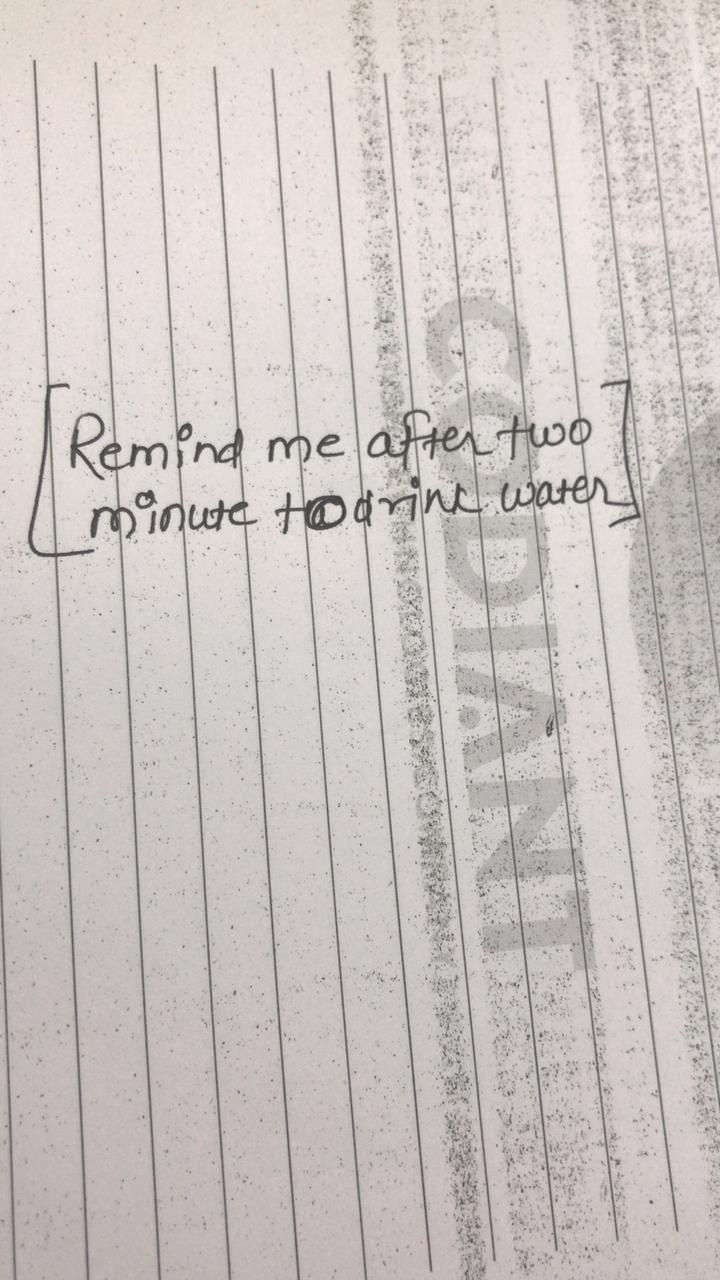 [Remind me after two
minute to drink water]
CODIANT